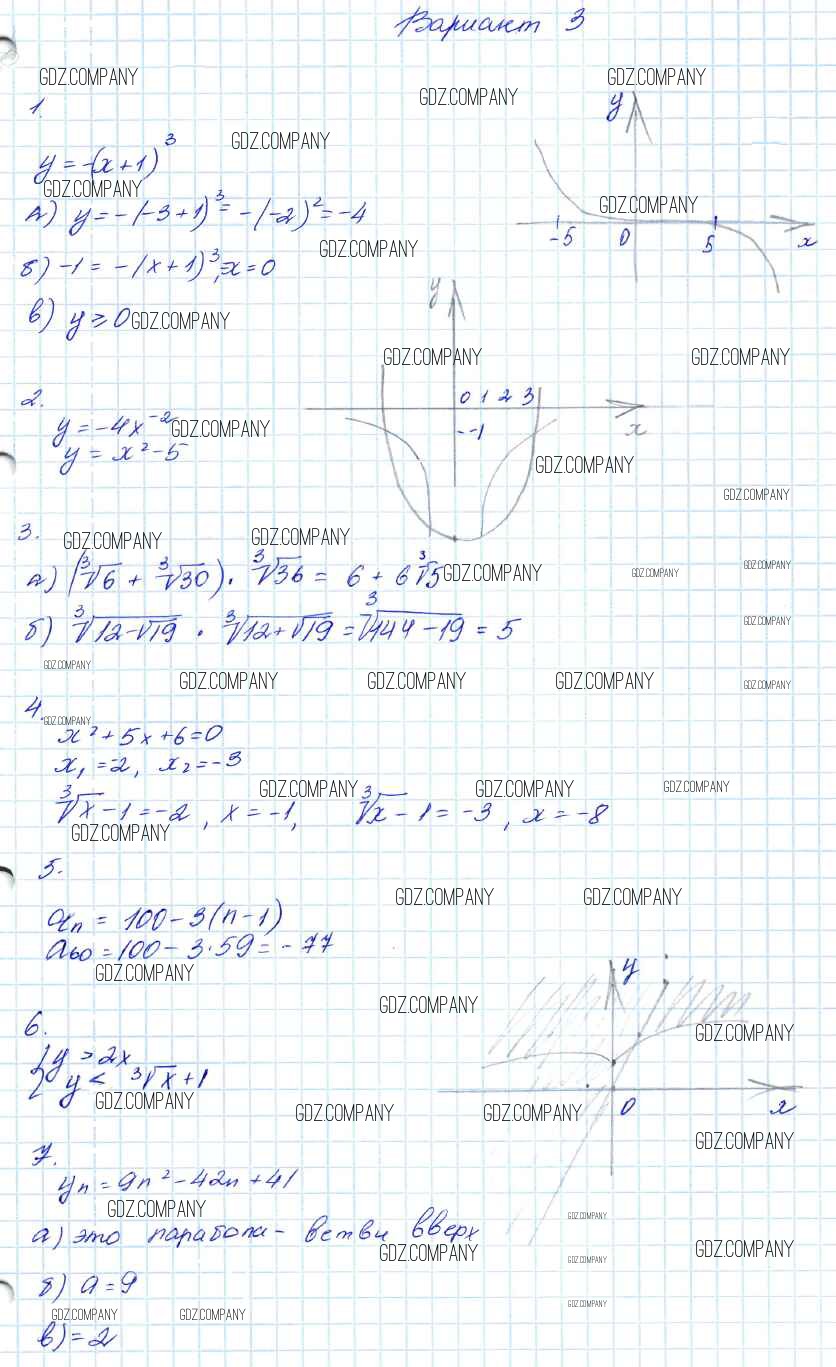 Вариант 3
GDZ.COMPANY GDZ.COMPANY GDZ.COMPANY
1.
y
GDZ.COMPANY
y = -(x+1)³
GDZ.COMPANY GDZ.COMPANY
а) y = -(-3+1)³ = -(-2)² = -4
-5 0 5 x
GDZ.COMPANY
б) -1 = -(x+1)³, x = 0
y
в) y ≥ 0 GDZ.COMPANY
GDZ.COMPANY GDZ.COMPANY
2.
0 1 2 3
y = -4x⁻² GDZ.COMPANY
-1 x
y = x² - 5
GDZ.COMPANY
GDZ.COMPANY
3.
GDZ.COMPANY GDZ.COMPANY
а) (∛6 + ∛30) · ∛36 = 6 + 6∛5 GDZ.COMPANY GDZ.COMPANY GDZ.COMPANY
б) ∛(12-√19) · ∛(12+√19) = ∛(144-19) = 5
GDZ.COMPANY
GDZ.COMPANY
GDZ.COMPANY GDZ.COMPANY GDZ.COMPANY GDZ.COMPANY
4.
GDZ.COMPANY
x² + 5x + 6 = 0
x₁ = -2, x₂ = -3
GDZ.COMPANY GDZ.COMPANY GDZ.COMPANY
∛x - 1 = -2, x = -1, ∛x - 1 = -3, x = -8
GDZ.COMPANY
5.
GDZ.COMPANY GDZ.COMPANY
aₙ = 100 - 3(n-1)
a₆₀ = 100 - 3·59 = -77
GDZ.COMPANY
y
GDZ.COMPANY
6.
GDZ.COMPANY
{ y > 2x
y < ∛x + 1
GDZ.COMPANY GDZ.COMPANY GDZ.COMPANY
0 x
GDZ.COMPANY
7.
yₙ = 9n² - 42n + 41
GDZ.COMPANY GDZ.COMPANY
а) это парабола - ветви вверх
GDZ.COMPANY GDZ.COMPANY GDZ.COMPANY
б) a = 9
GDZ.COMPANY GDZ.COMPANY GDZ.COMPANY
в) = 2